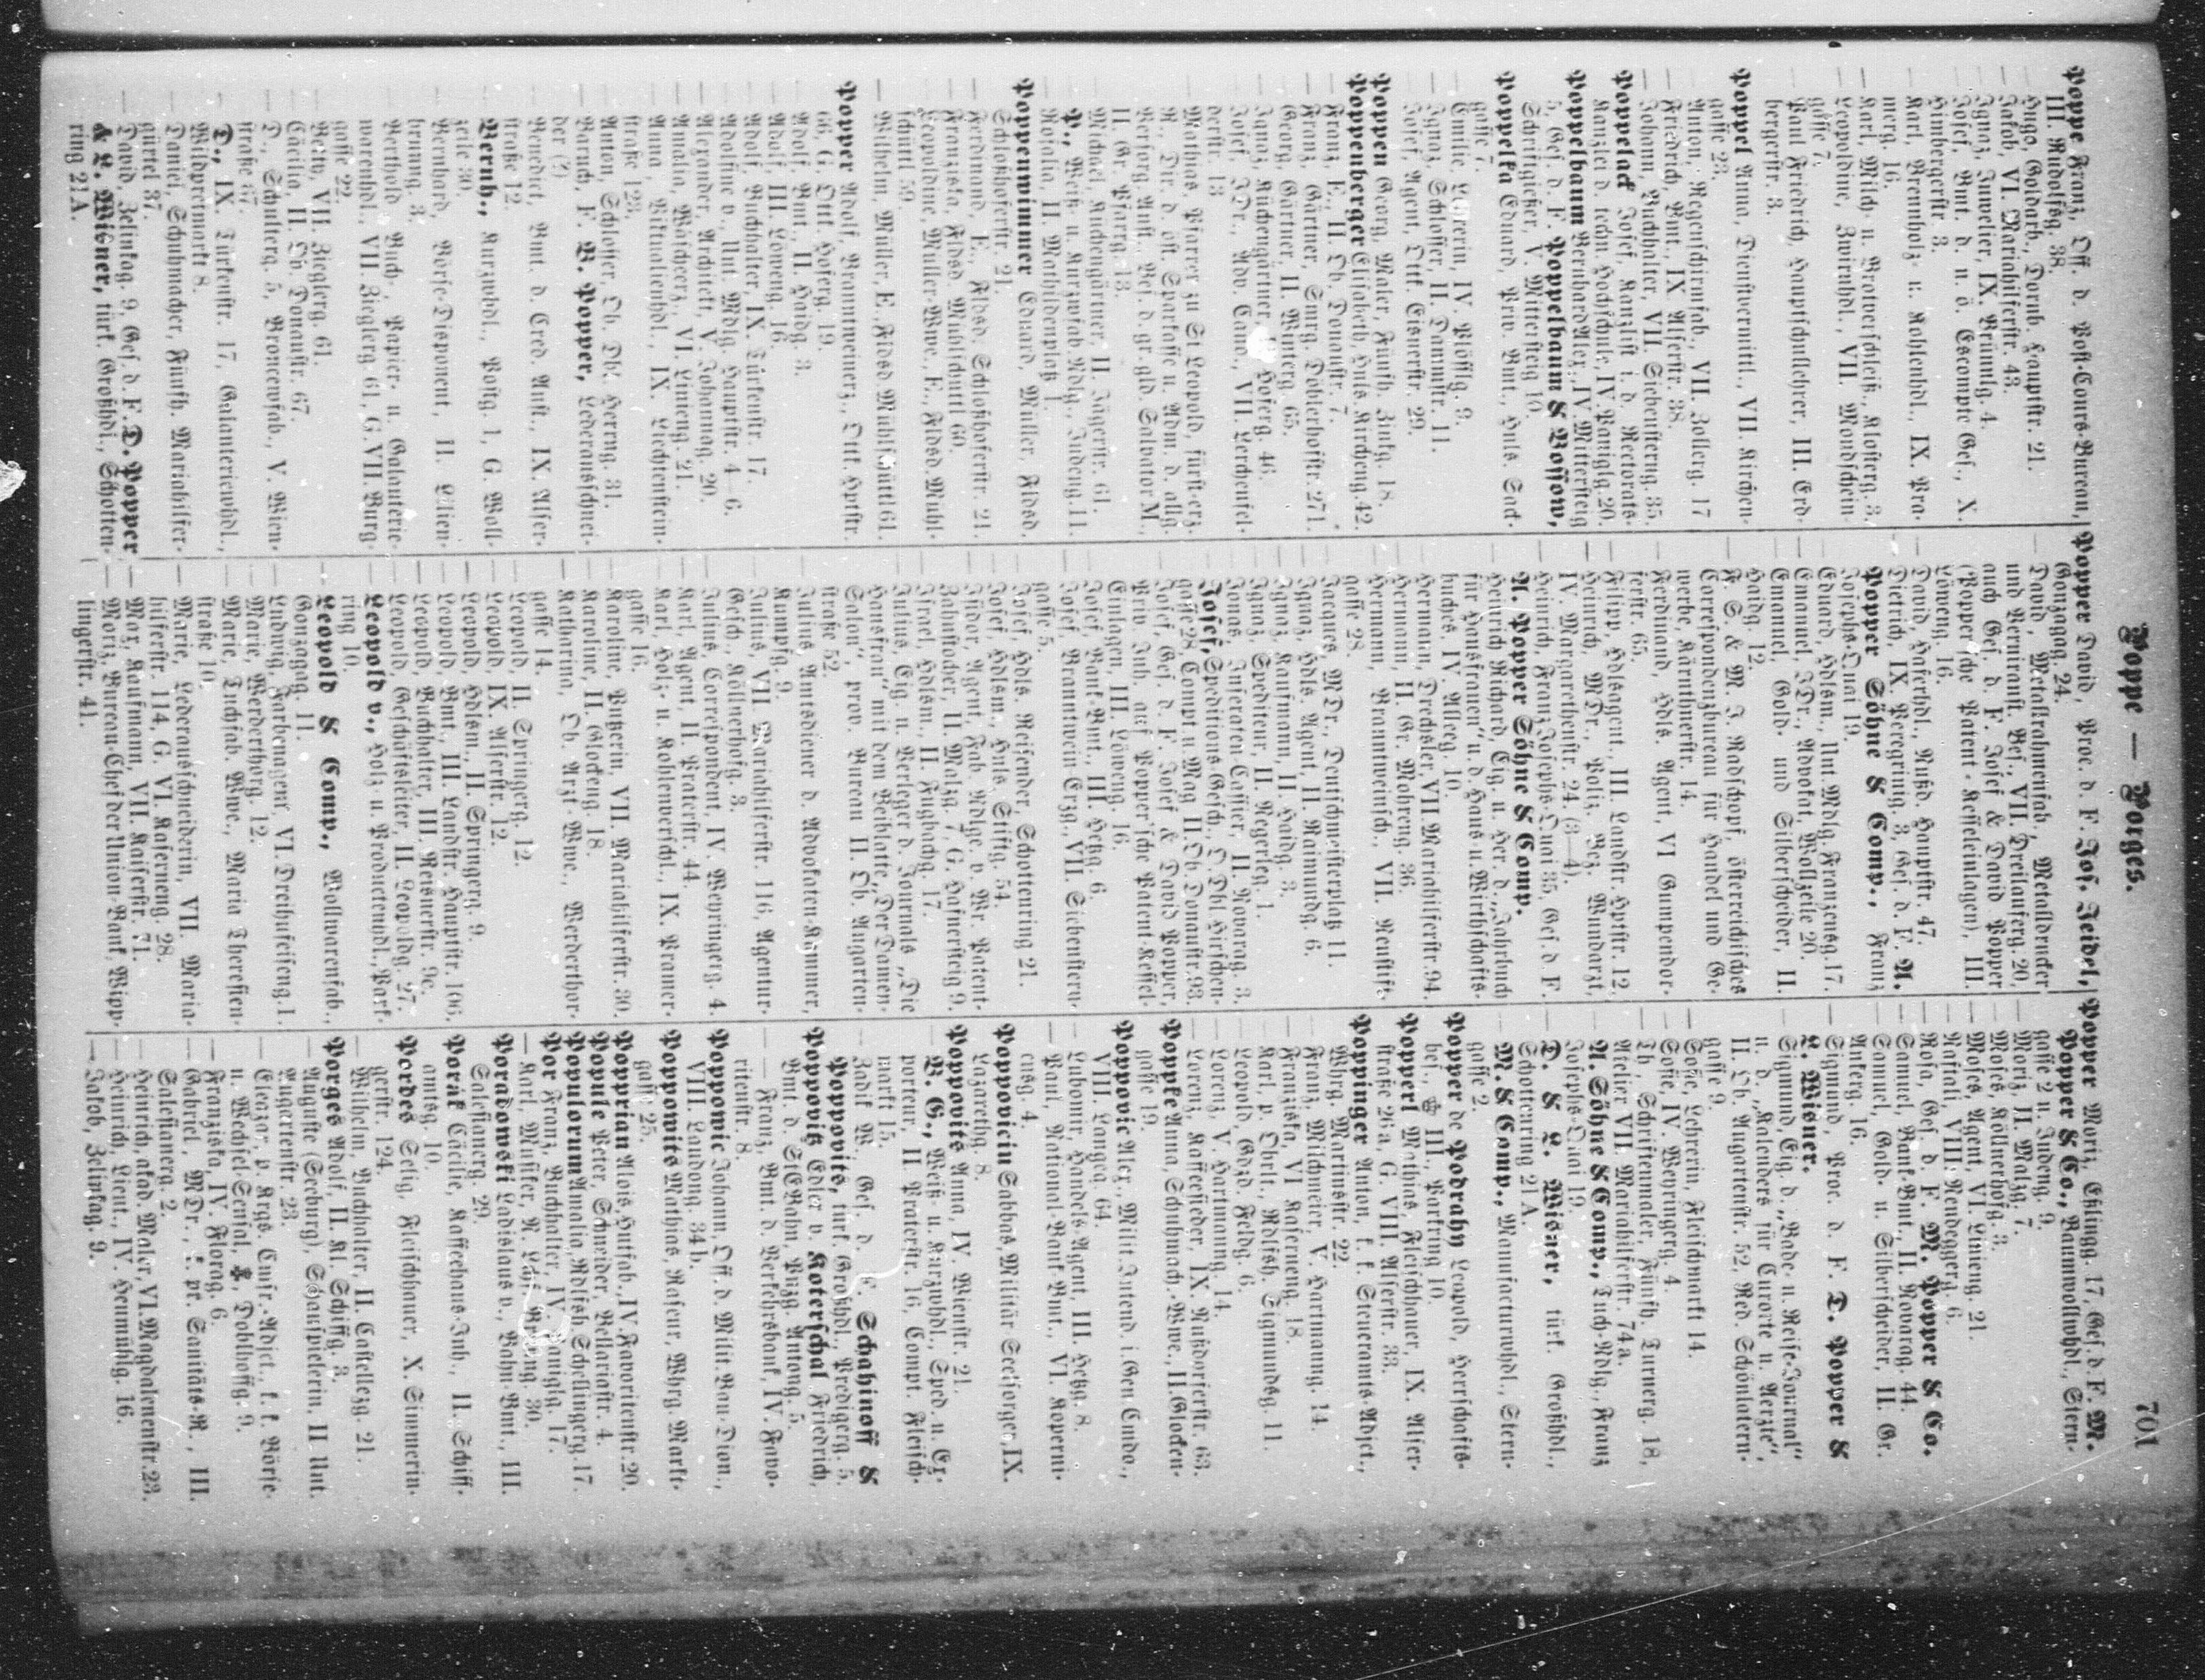 Poppe — Porges.
701
Poppe Franz, Off. d. Post-Cours-Bureau,
III. Rudolfsg. 38.
— Hugo, Goldarb., Dornb. Hauptstr. 21.
— Jakob, VI. Mariahilferstr. 43.
— Ignaz, Juwelier, IX. Brünnlg. 4.
— Josef, Bmt. d. n. ö. Escompte Ges., X.
Himbergerstr. 3.
— Karl, Brennholz- u. Kohlenhdl., IX. Pra-
merg. 16.
— Karl, Milch- u. Brotverschleiß, Klosterg. 3.
— Leopoldine, Zwirnhdl., VII. Mondschein-
gasse 7.
— Paul Friedrich, Hauptschullehrer, III. Erd-
bergerstr. 3.
Poppel Anna, Dienstvermittl., VII. Kirchen-
gasse 23.
— Anton, Regenschirmfab., VII. Zollerg. 17
— Friedrich, Bmt., IX Alserstr. 38.
— Johann, Buchhalter, VII. Siebensterng. 35.
Poppelack Josef, Kanzlist i. d. Rectorats-
Kanzlei d. techn. Hochschule, IV. Panigl. 20.
Poppelbaum Bernhard Alex., IV. Mittersteig
5, Ges. d. F. Poppelbaum & Bossow,
Schriftgießer, V. Mittersteig 10.
Poppelka Eduard, Prw. Bmt., Hrls. Sack-
gasse 7.
— Emilie, Lehrerin, IV. Plößlg. 9.
— Ignaz, Schlosser, II. Dammstr. 11.
— Josef, Agent, Ottk. Eisnerstr. 29.
Poppen Georg, Maler, Fünfh. Zinkg. 18.
Poppenberger Elisabeth, Hrls. Kircheng. 42.
— Franz, E., II. Ob. Donaustr. 7.
— Franz, Gärtner, Simrg. Döblerhofstr. 271.
— Georg, Gärtner, II. Winterg. 65.
— Ignaz, Küchengärtner, Hoferg. 46.
— Josef, JDr., Adv. Cand., VII. Lerchenfel-
derstr. 13
— Mathias, Pfarrer zu St. Leopold, fürst-erz.
R., Dir. d. öst. Sparkasse u. Adm. d. allg.
Versorg. Anst., Bes. d. gr. gld. Salvator M.,
II. Gr. Pfarrg. 13.
— Michael, Küchengärtner, II. Jägerstr. 61.
— P., Weiß- u. Kurzwfab. Ndlg., Judeng. 11.
— Rosalia, II. Mathildenplatz 1.
Poppenwimmer Eduard, Müller, Fldsd.
Schloßhoferstr. 21.
— Ferdinand, E., Fldsd. Schloßhoferstr. 21.
— Franziska, Fldsd. Mühlschüttl 60.
— Leopoldine, Müller-Wwe., E., Fldsd. Mühl-
schüttl 59.
— Wilhelm, Müller, E., Fldsd. Mühlschüttl 61.
Popper Adolf, Branntweinerz., Ottk. Hptstr.
66, G. Ottk. Hoferg. 19.
— Adolf, Bmt., II. Haidg. 3.
— Adolf, III. Löweng. 16.
— Adolf, Buchhalter, IX. Türkenstr. 17.
— Adolfine v., Unt. Mdlg. Hauptstr. 4—6.
— Alexander, Architekt, V. Johannag. 20.
— Amalia, Wäscherz., VI. Linieng. 21.
— Anna, Viktualienhdl., IX. Liechtenstein-
straße 123.
— Anton, Schlosser, Ob. Dbl. Herrng. 31.
— Baruch, F. B. Popper, Lederausschnei-
der (?)
— Benedict, Bmt. d. Cred. Anst., IX. Alser-
straße 12.
— Bernh., Kurzwhdl., Postg. 1, G. Woll-
zeile 30.
— Bernhard, Börse-Disponent, II. Lilien-
brunng. 3.
— Berthold, Buch-, Papier- u. Galanterie-
warenhdl., VII. Zieglerg. 61, G. VII. Burg-
gasse 22.
— Betty, VII. Zieglerg. 61.
— Cäcilia, II. Ob. Donaustr. 67.
— D., Schulterg. 5, Broncewfab., V. Wien-
straße 67.
— D., IX. Türkenstr. 17, Galanteriewhdl.,
Wildpretmarkt 8.
— Daniel, Schuhmacher, Fünfh. Mariahilfer-
gürtel 37.
— David, Zelinkag. 9, Ges. d. F. D. Popper
& L. Wisner, türk. Großhdl., Schotten-
ring 21 A.
Popper David, Proc. d. F. Jos. Zeidel,
Gonzagag. 24.
— David, Metallrahmenfab., Metalldrucker
und Kernrinast. Bes., VII. Dreilauferg. 20,
auch Ges. d. F. Josef & David Popper
(Popper'sche Patent-Kesseleinlagen), III.
Löweng. 16.
— David, Haferhdl., Nußd. Hauptstr. 47.
— Dietrich, IX. Peregring. 3, Ges. d. F. A.
Popper Söhne & Comp., Franz
Josephs-Quai 19.
— Eduard, Hdlsm., Unt. Mdlg. Franzensg. 17.
— Emanuel, JDr., Advokat, Wollzeile 20.
— Emanuel, Gold- und Silberscheider, II.
Haidg. 12.
— F. S. & M. J. Radschopf, österreichisches
Correspondenzbureau für Handel und Ge-
werbe, Kärnthnerstr. 14.
— Ferdinand, Hdls. Agent, VI Gumpendor-
ferstr. 65.
— Filipp, Hdlsagent, III. Landstr. Hptstr. 12.
— Heinrich, MDr., Poliz. Bez. Wundarzt,
IV. Margarethenstr. 24 (3—4).
— Heinrich, Franz Josephs-Quai 35, Ges. d. F.
A. Popper Söhne & Comp.
— Heinrich Richard, Eig. u. Her. d. „Jahrbuch
für Hausfrauen" u. d. Haus- u. Wirthschafts-
buches, IV. Alleeg. 10.
— Herman, Drechsler, VII. Mariahilferstr. 94.
— Hermann, II. Gr. Mohreng. 36.
— Hermann, Branntweinsch., VII. Neustift-
gasse 28.
— Jacques, MDr., Deutschmeisterplatz 11.
— Ignaz, Hdls. Agent, II. Raimundg. 6.
— Ignaz, Kaufmann, II. Haidg. 3.
— Ignaz, Spediteur, II. Negerleg. 1.
— Jonas, Inseraten-Cassier, II. Novarag. 3.
— Josef, Speditions-Gesch., O. Dbl. Hirschen-
gasse 28, Compt. u. Mag. II. Ob. Donaustr. 93.
— Josef, Ges. d. F. Josef & David Popper,
Priv. Inh. auf Popper'sche Patent-Kessel-
Einlagen, III. Löweng. 16.
— Josef, Bank-Bmt., III. Hetzg. 6.
— Josef, Branntwein-Erzg., VII. Siebenstern-
gasse 5.
— Josef, Hdls. Reisender, Schottenring 21.
— Josef, Hdlsm., Hrnls. Stiftg. 54.
— Isidor, Agent, Fab. Ndlge. v. Wr. Patent-
Zahnstocher, II. Malzg. 7, G. Hafnersteig 9.
— Israel, Hdlsm., II. Fugbachg. 17.
— Julius, Eig. u. Verleger d. Journals „Die
Hausfrau" mit dem Beiblatte „Der Damen-
Salon", prov. Bureau II. Ob. Augarten-
straße 52.
— Julius, Amtsdiener d. Advokaten-Kammer,
Rumpfg. 9.
— Julius, VII. Mariahilferstr. 116, Agentur-
Gesch. Köllnerhofg. 3.
— Julius, Correspondent, IV. Weyringerg. 4.
— Karl, Agent, II. Praterstr. 44.
— Karl, Holz- u. Kohlenverschl., IX. Pramer-
gasse 16.
— Karoline, Putzerin, VII. Mariahilferstr. 30.
— Karoline, II. Glockeng. 18.
— Katharina, Ob. Arzt-Wwe., Werderthor-
gasse 14.
— Leopold, II. Springerg. 12.
— Leopold, IX. Alserstr. 12.
— Leopold, Hdlsm., II. Springerg. 9.
— Leopold, Bmt., III. Landstr. Hauptstr. 106.
— Leopold, Buchhalter, III. Reisnerstr. 9c.
— Leopold, Geschäftsleiter, II. Leopoldg. 27.
— Leopold v., Holz- u. Productenhdl., Park-
ring 10.
— Leopold & Comp., Wollwarenfab.,
Gonzagag. 11.
— Ludwig, Farbenagent, VI. Drehufeisen. 1.
— Marie, Werderthorg. 12.
— Marie, Tuchfab. Wwe., Maria Theresien-
straße 10.
— Marie, Lederausschneiderin, VII. Maria-
hilferstr. 114, G. VI. Kaserneng. 28.
— Max, Kaufmann, VII. Kaiserstr. 71.
— Moriz, Bureau-Chef der Union-Bank, Wipp-
lingerstr. 41.
Popper Moriz, Eßlingg. 17, Ges. d. F. M.
Popper & Co., Baumwollwhdl., Stern-
gasse 2 u. Judeng. 9.
— Moriz, II. Malzg. 7.
— Moses, Köllnerhofg. 3.
— Moses, Agent, VI. Linieng. 21.
— Naftali, VIII. Skodeggerg. 6.
— Rosa, Ges. d. F. M. Popper & Co.
— Samuel, Bank-Bmt., II. Novarag. 44.
— Samuel, Gold- u. Silberscheider, II. Gr.
Ankerg. 16.
— Sigmund, Proc. d. F. D. Popper &
L. Wisner.
— Sigmund, Eig. d. „Bade- u. Reise-Journal"
u. d. „Kalenders für Curorte u. Aerzte",
II. Ob. Augartenstr. 52, Red. Schönlatern-
gasse 9.
— Sofie, Lehrerin, Fleischmarkt 14.
— Sofie, IV. Weyringerg. 4.
— Th., Schriftenmaler, Fünfh. Turnerg. 18,
Atelier VII. Mariahilferstr. 74a.
— A. Söhne & Comp., Tuch-Ndlg., Franz
Josephs-Quai 19.
— D. & L. Wisner, türk. Großhdl.,
Schottenring 21 A.
— M. & Comp., Manufacturwhdl., Stern-
gasse 2.
Popper de Podrahy Leopold, Herrschafts-
bes., III., Parkring 10.
Popperl Mathias, Fleischhauer, IX. Alser-
straße 26a, G. VIII. Alserstr. 33.
Poppinger Anton, k. k. Steueramts-Adjct.,
Whrg. Martinsstr. 22.
— Franz, Milchmeier, V. Hartmanng. 14.
— Franziska, VI Kaserneng. 18.
— Karl, p. Obrlt., Rdlfsh. Sigmundsg. 11.
— Leopold, Gdzd. Feldg. 6.
— Lorenz, V. Hartmanng. 14.
— Lorenz, Kaffeesieder, IX. Nußdorferstr. 63.
Poppke Anna, Schuhmach.-Wwe., II. Glocken-
gasse 19.
Poppovic Alex., Milit. Intend. i. Gen Cmdo.,
VIII. Langeg. 64.
— Lubomir, Handels-Agent, III. Hetzg. 8.
— Paul, National-Bank-Bmt., VI. Koperni-
cusg. 4.
Poppovicin Sabbas, Militär Seelsorger, IX.
Lazarethg. 8.
Poppovits Anna, IV. Wienstr. 21.
— B. G., Weiß- u. Kurzwhdl., Sped. u. Ex-
porteur, II Praterstr. 16, Compt. Fleisch-
markt 15.
— Zadik W., Ges. d. F. Schahinoff &
Poppovits, türk. Großhdl., Predigerg. 5.
Poppovitz Edler v. Koterschal Friedrich,
Bmt. d. StEBahn, Pnzg. Antong. 5.
— — Franz, Bmt. d. Verkehrsbank, IV. Favo-
ritenstr. 8.
Poppowic Johann, Off. d. Milit. Bau-Dion.,
VIII. Landong. 34 b.
Poppowits Mathias, Raseur, Whrg. Markt-
gasse 25.
Popprian Alois, Hutfab., IV. Favoritenstr. 20.
Popule Peter, Schneider, Bellariastr. 4.
Populorum Amalia, Rdlfsh. Schellingerg. 17.
Por Franz, Buchhalter, IV. Paniglg. 17.
— Karl, Musiker, N. Lchf. 30.
Poradowski Ladislaus v., Bahn-Bmt., III.
Salesianerg. 29.
Pornk Cäcilie, Kaffeehaus-Inh., II. Schiff-
amtsg. 10.
Pordes Selig, Fleischhauer, X. Simmerin-
gerstr. 124.
— Wilhelm, Buchhalter, II. Castellezg. 21.
Porges Adolf, II. Kl. Schiffg. 3.
— Auguste (Seeburg), Schauspielerin, II Unt.
Augartenstr. 23.
— Eleazar, p. Krgs. Cmss.-Adjct., k. k. Börse-
u. Wechsel-Sensal, Doblhoffg. 9.
— Franziska, IV. Florag. 6.
— Gabriel, MDr., k. pr. Sanitäts-R., III.
Salesianerg. 2.
— Heinrich, akad. Maler, VI. Magdalenenstr. 23.
— Heinrich, Lieut., IV. Heumühlg. 16.
— Jakob, Zelinkag. 9.